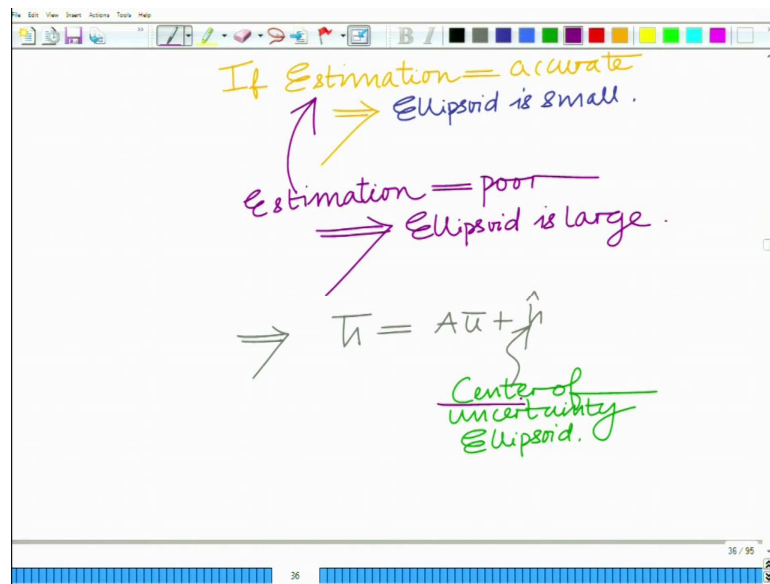 File Edit View Insert Actions Tools Help
B I
If Estimation = accurate
⇒ Ellipsoid is small.
Estimation = poor
⇒ Ellipsoid is large.
⇒ h̅ = Au̅ + ĥ
Center of
uncertainty
Ellipsoid.
36 / 95
36